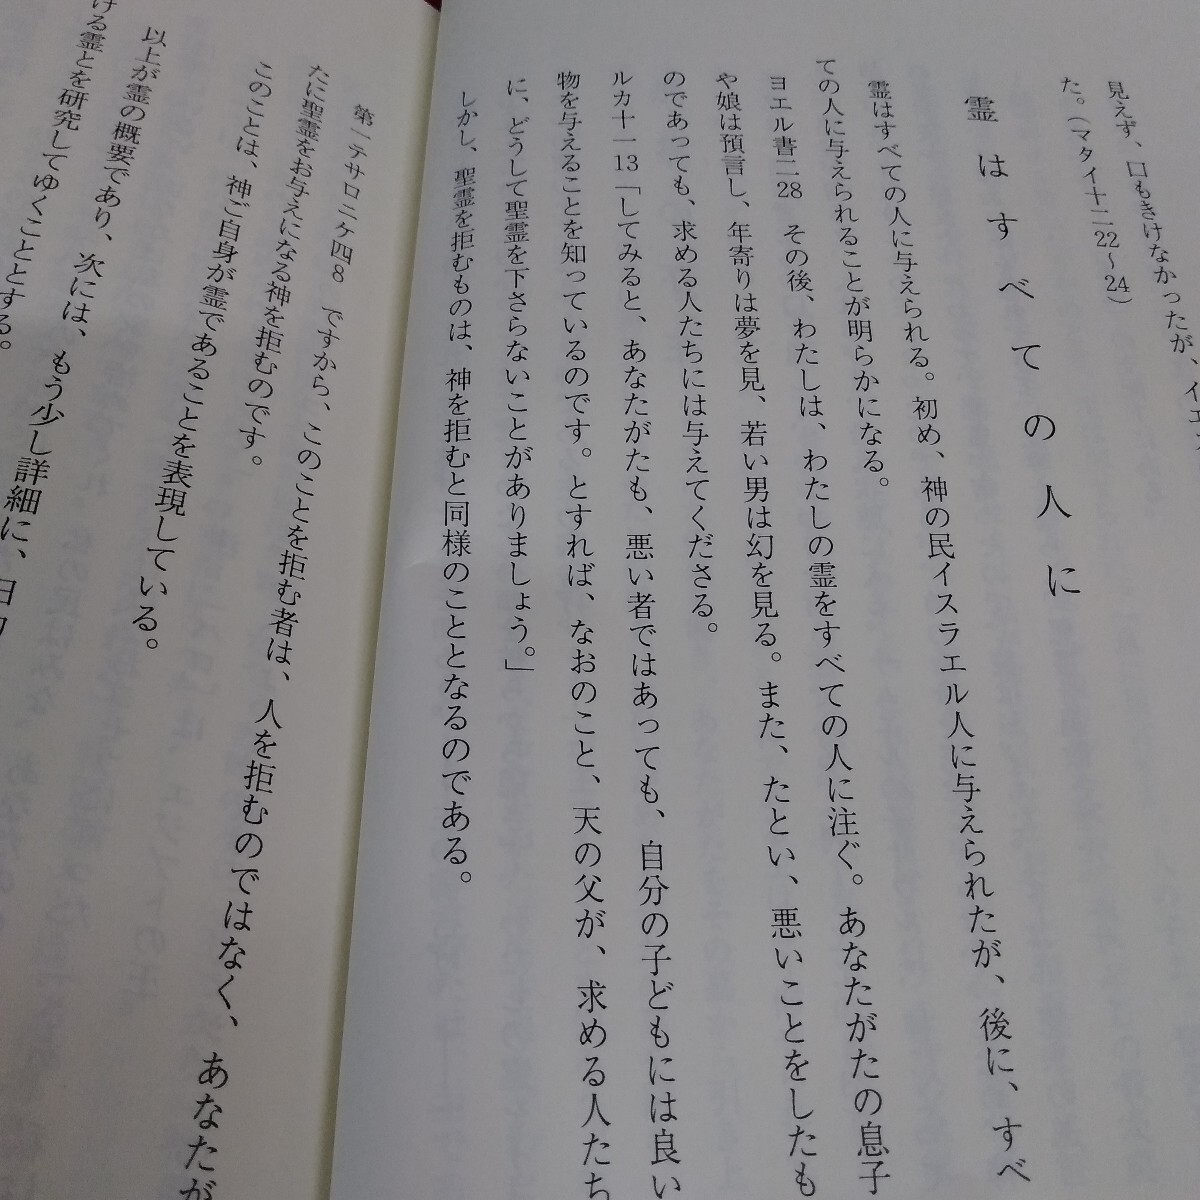 見えず、口もきけなかったが、イエス
た。(マタイ十二22〜24)
霊はすべての人に
霊はすべての人に与えられる。初め、神の民イスラエル人に与えられたが、後に、すべ
ての人に与えられることが明らかになる。
ヨエル書二28 その後、わたしは、わたしの霊をすべての人に注ぐ。あなたがたの息子
や娘は預言し、年寄りは夢を見、若い男は幻を見る。また、たとい、悪いことをしたも
のであっても、求める人たちには与えてくださる。
ルカ十一13「してみると、あなたがたも、悪い者ではあっても、自分の子どもには良い
物を与えることを知っているのです。とすれば、なおのこと、天の父が、求める人たち
に、どうして聖霊を下さらないことがありましょう。」
しかし、聖霊を拒むものは、神を拒むと同様のこととなるのである。
第一テサロニケ四8 ですから、このことを拒む者は、人を拒むのではなく、あなたが
たに聖霊をお与えになる神を拒むのです。
このことは、神ご自身が霊であることを表現している。
以上が霊の概要であり、次には、もう少し詳細に、旧約
ける霊とを研究してゆくこととする。